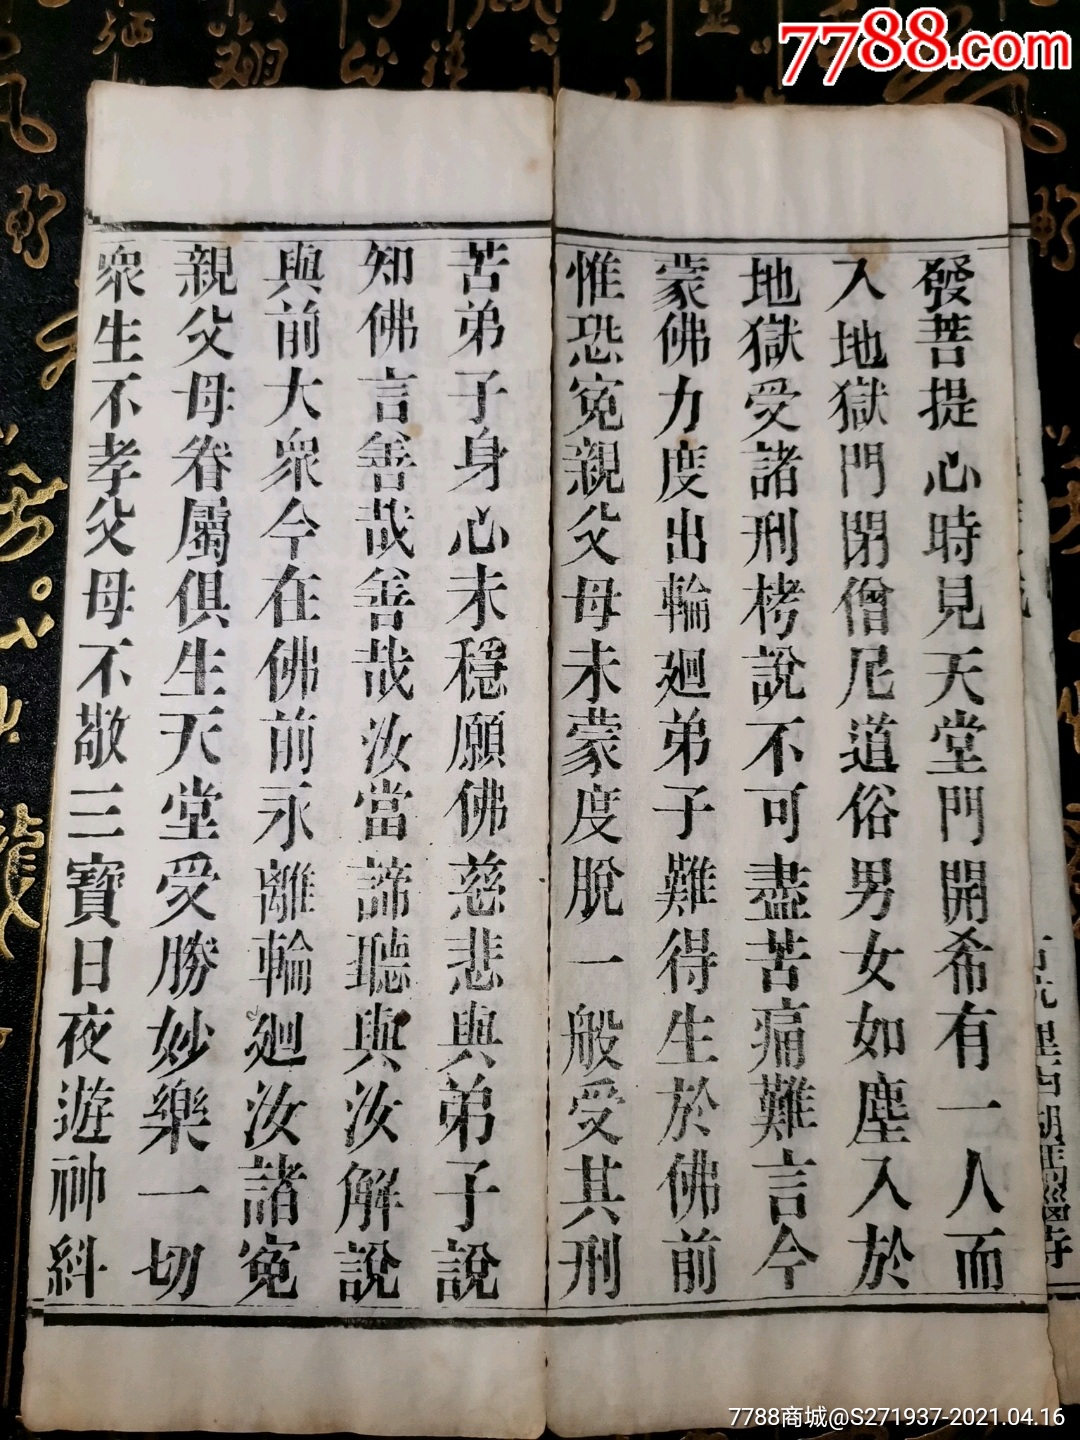 發菩提心時見天堂門開希有一人而
入地獄門閉僧尼道俗男女如塵入於
地獄受諸刑栲說不可盡苦痛難言今
蒙佛力度出輪廻弟子難得生於佛前
惟恐冤親父母未蒙度脫一般受其刑
苦弟子身心未穩願佛慈悲與弟子說
知佛言善哉善哉汝當諦聽與汝解說
與前大衆今在佛前永離輪廻汝諸冤
親父母眷屬俱生天堂受勝妙樂一切
衆生不孝父母不敬三寶日夜遊神糾
7788.com
7788商城@S271937-2021.04.16